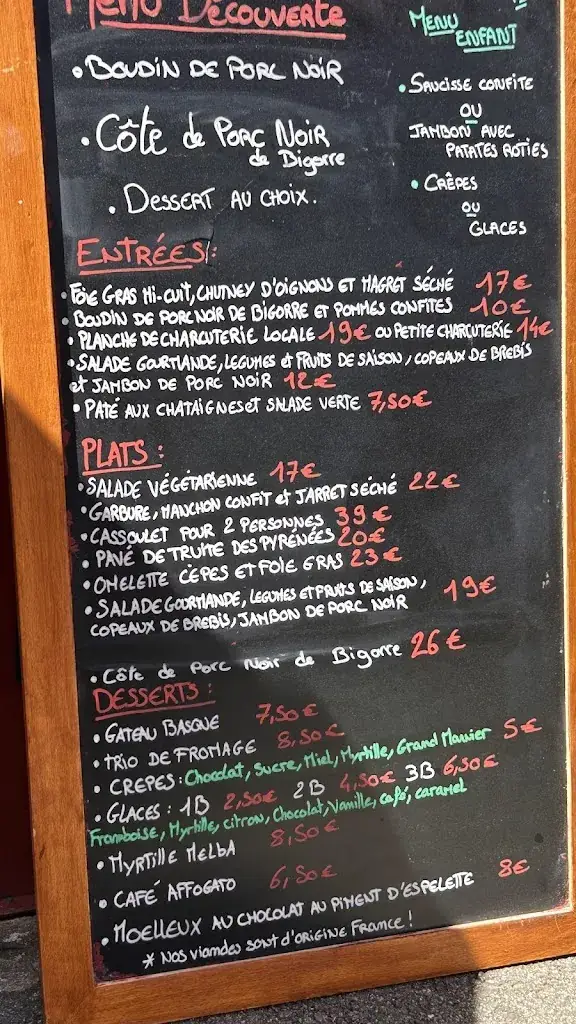 Menu Découverte
• Boudin de Porc Noir
• Côte de Porc Noir
de Bigorre
• Dessert au choix.
Menu
Enfant
• Saucisse confite
ou
Jambon avec
patates roties
• Crêpes
ou
Glaces
Entrées :
• Foie gras mi-cuit, chutney d'oignons et magret séché 17€
• Boudin de porc noir de Bigorre et pommes confites 10€
• Planche de charcuterie locale 19€ ou petite charcuterie 14€
• Salade gourmande, legumes et fruits de saison, copeaux de brebis
et jambon de porc noir 12€
• Paté aux chataignes et salade verte 7,50€
Plats :
• Salade végétarienne 17€
• Garbure, manchon confit et jarret séché 22€
• Cassoulet pour 2 personnes 39€
• Pavé de truite des Pyrénées 20€
• Omelette cèpes et foie gras 23€
• Salade gourmande, legumes et fruits de saison,
copeaux de brebis, jambon de porc noir 19€
• Côte de Porc Noir de Bigorre 26€
Desserts :
• Gateau Basque 7,50€
• Trio de fromage 8,50€
• Crepes : Chocolat, Sucre, Miel, Myrtille, Grand Marnier 5€
• Glaces : 1B 2,50€ 2B 4,50€ 3B 6,50€
Framboise, Myrtille, citron, Chocolat, Vanille, café, caramel
• Myrtille Melba 8,50€
• Café affogato 6,50€
• Moelleux au chocolat au piment d'espelette 8€
* Nos viandes sont d'origine France !